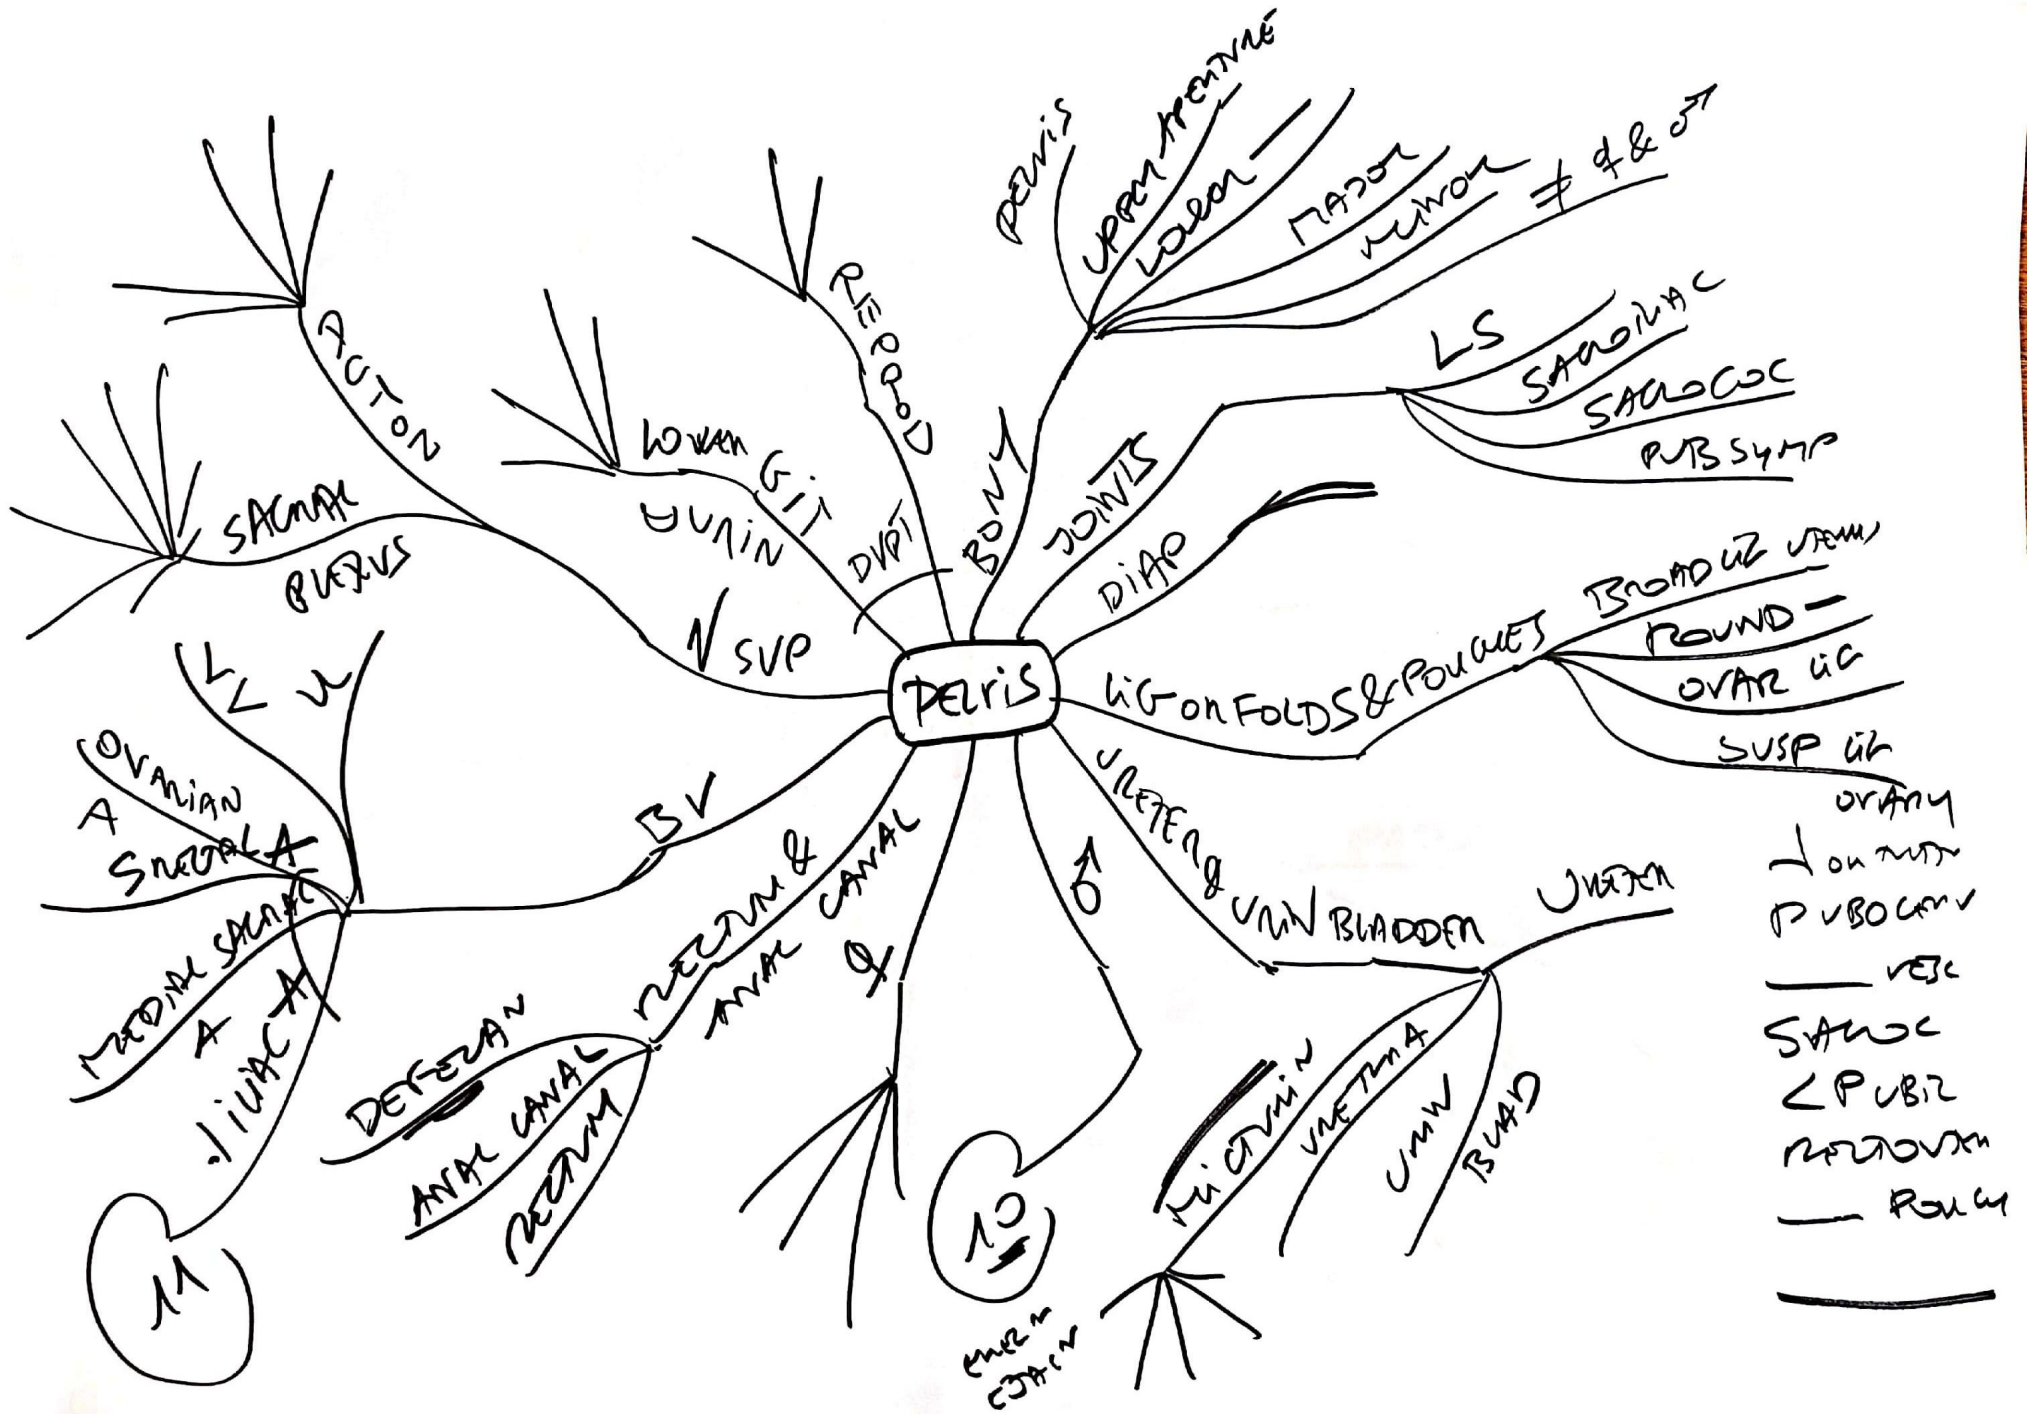 PELVIS
BONY
PELVIS
UPPER APERTURE
LOWER —
MAJOR
MINOR
≠ ♀ & ♂
JOINTS
LS
SACROILIAC
SACROCOC
PUB SYMP
DIAP
LIG OR FOLDS & POUCHES
BROAD LIG UTERUS
ROUND —
OVAR LIG
SUSP LIG
OVARY
PUBOCERV
VESC
SACROC
< PUBIC
RECTOUTER
POUCH
URETER &
URIN BLADDER
URETER
URIN
BLAD
URETHRA
MICTURIN
♂
10
♀
RECTUM &
ANAL CANAL
DEFECAN
ANAL CANAL
RECTUM
BV
LL
OVARIAN
A
S RECTAL A
MEDIAL SACRAL
A
ILIAC A
11
N SVP
SACRAL
PLEXUS
ACTON
DVPT
LOWER GIT
URIN
REPROD